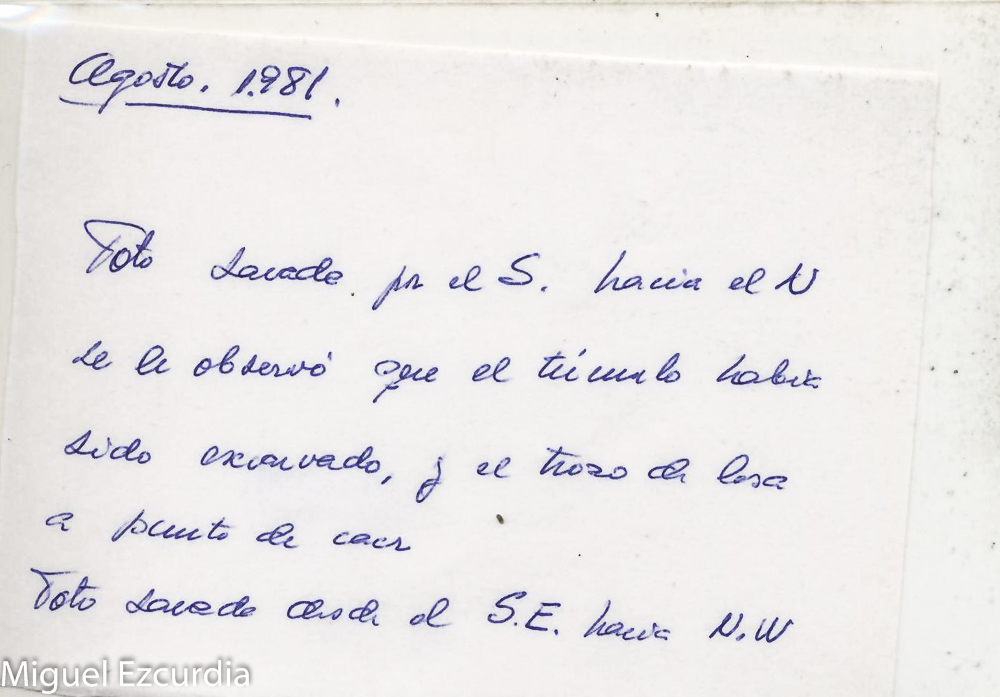 Agosto. 1.981.
Foto sacada por el S. hacia el N
se le observó que el túmulo habia
sido excavado, y el trozo de losa
a punto de caer
Foto sacada desde el S.E. hacia N.W
Miguel Ezcurdia